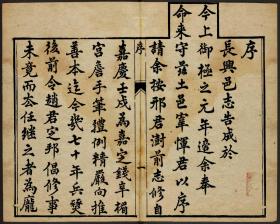 序
長興邑志告成於
今上御極之元年適余奉
命來守茲土邑宰惲君以序
請余按邢君澍前志修自
序
嘉慶壬戌為嘉定錢辛楣
宮詹手筆體例精嚴向推
善本迄今幾七十年兵燹
後前令趙君定邦倡修事
未竟而去任繼之者為龐